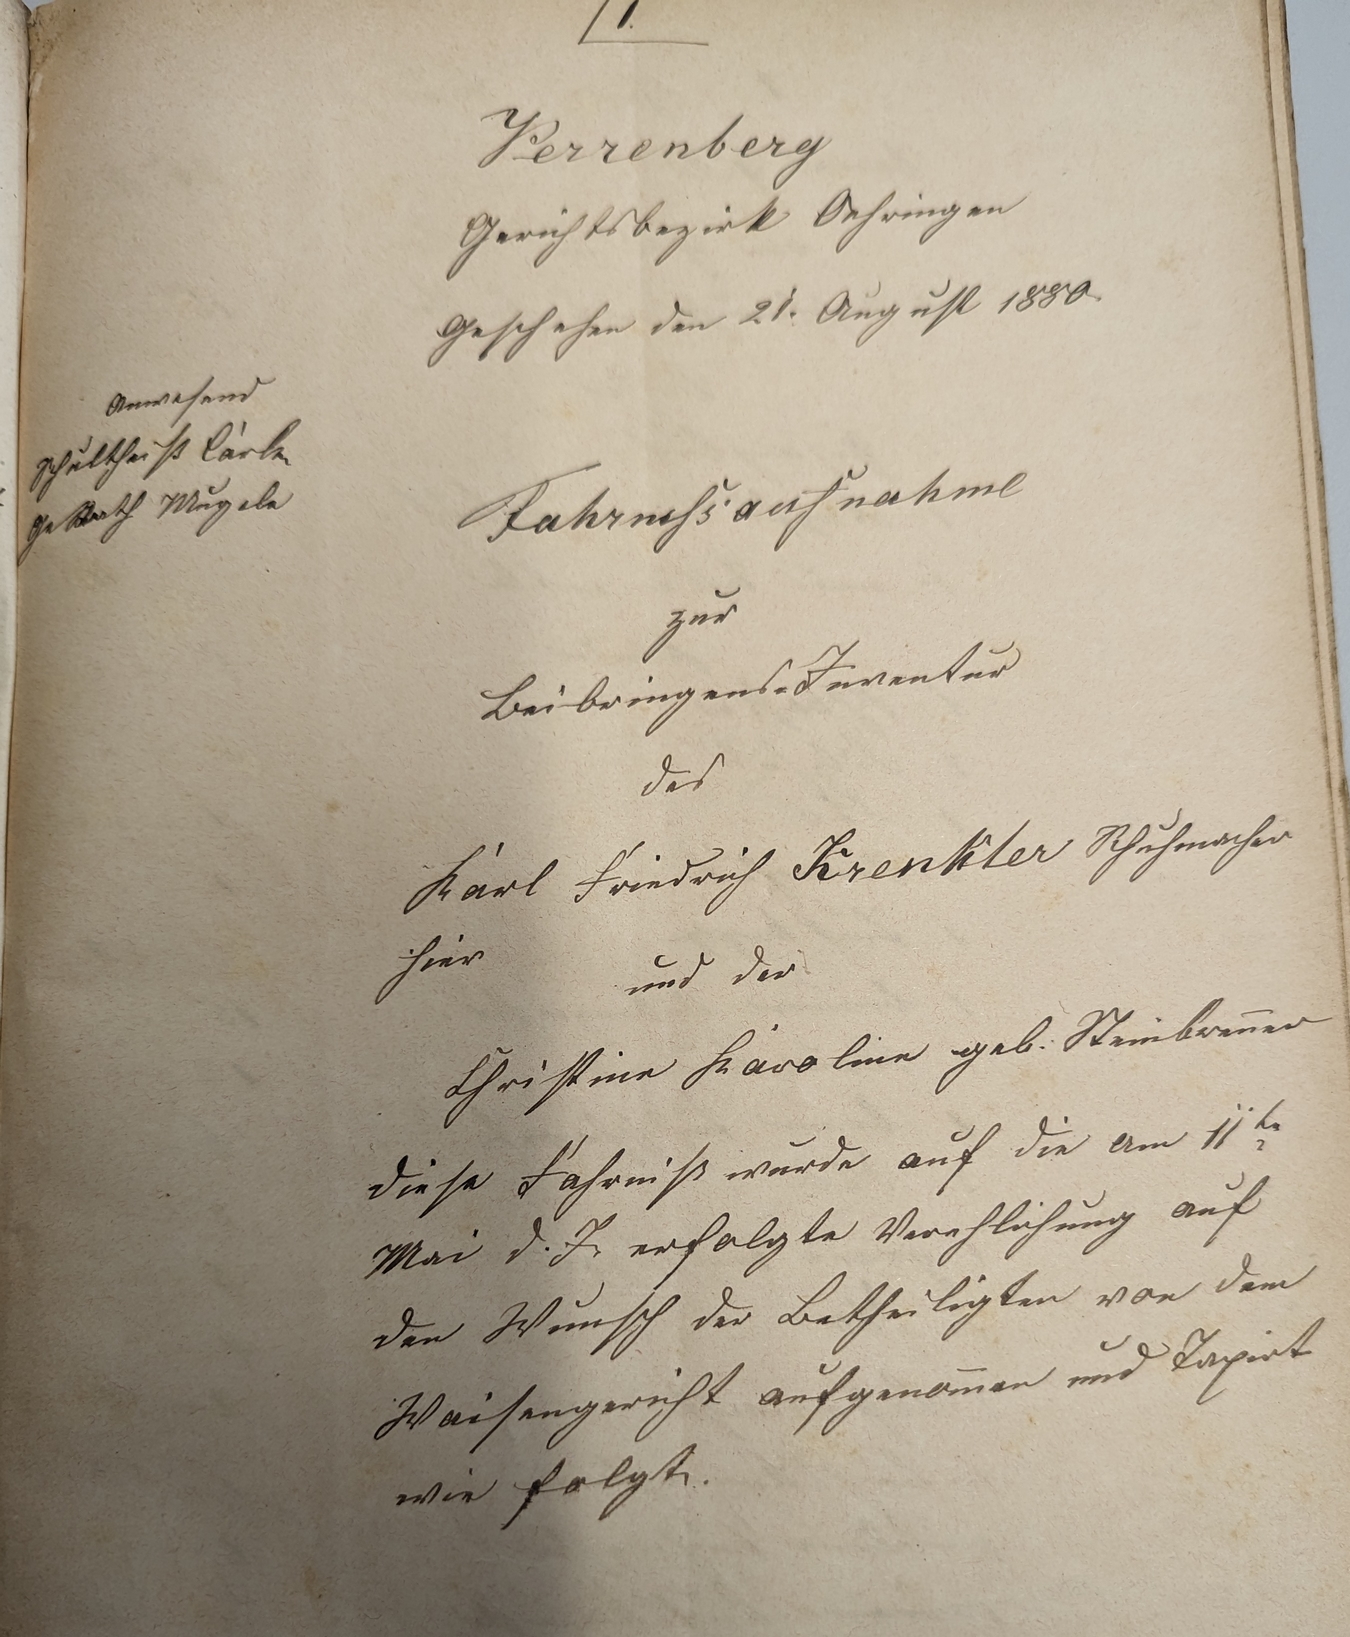 1.
Verrenberg
Gerichtsbezirk Oehringen
Geschehen den 21. August 1880.
Anwesend
Schultheiß
GeRath Mugele
Fahrnißaufnahme
zur
Beibringens-Inventur
des
Karl Friedrich Krenkler Schuhmacher
hier
und der
Christine Karoline geb. Steinbrenner
diese Fahrniß wurde auf die am 11te
Mai d. J. erfolgte Verehlichung auf
den Wunsch der Betheiligten von dem
Waisengericht aufgenom̅en und Taxirt
wie folgt.